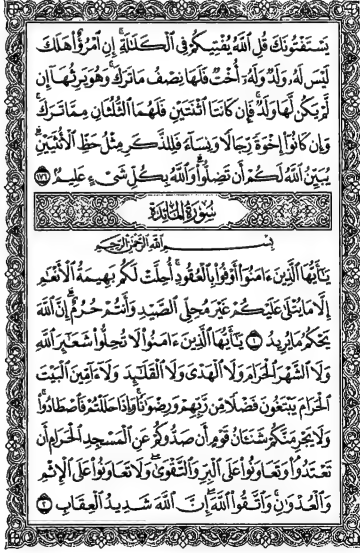 يَسْتَفْتُونَكَ قُلِ ٱللَّهُ يُفْتِيكُمْ فِى ٱلْكَلَـٰلَةِ ۚ إِنِ ٱمْرُؤٌا۟ هَلَكَ
لَيْسَ لَهُۥ وَلَدٌ وَلَهُۥٓ أُخْتٌ فَلَهَا نِصْفُ مَا تَرَكَ ۚ وَهُوَ يَرِثُهَآ إِن
لَّمْ يَكُن لَّهَا وَلَدٌ ۚ فَإِن كَانَتَا ٱثْنَتَيْنِ فَلَهُمَا ٱلثُّلُثَانِ مِمَّا تَرَكَ ۚ
وَإِن كَانُوٓا۟ إِخْوَةً رِّجَالًا وَنِسَآءً فَلِلذَّكَرِ مِثْلُ حَظِّ ٱلْأُنثَيَيْنِ ۗ
يُبَيِّنُ ٱللَّهُ لَكُمْ أَن تَضِلُّوا۟ ۗ وَٱللَّهُ بِكُلِّ شَىْءٍ عَلِيمٌۢ ١٧٦
سُورَةُ المَائِدَة
بِسْمِ ٱللَّهِ ٱلرَّحْمَـٰنِ ٱلرَّحِيمِ
يَـٰٓأَيُّهَا ٱلَّذِينَ ءَامَنُوٓا۟ أَوْفُوا۟ بِٱلْعُقُودِ ۚ أُحِلَّتْ لَكُم بَهِيمَةُ ٱلْأَنْعَـٰمِ
إِلَّا مَا يُتْلَىٰ عَلَيْكُمْ غَيْرَ مُحِلِّى ٱلصَّيْدِ وَأَنتُمْ حُرُمٌ ۗ إِنَّ ٱللَّهَ
يَحْكُمُ مَا يُرِيدُ ١ يَـٰٓأَيُّهَا ٱلَّذِينَ ءَامَنُوا۟ لَا تُحِلُّوا۟ شَعَـٰٓئِرَ ٱللَّهِ
وَلَا ٱلشَّهْرَ ٱلْحَرَامَ وَلَا ٱلْهَدْىَ وَلَا ٱلْقَلَـٰٓئِدَ وَلَآ ءَآمِّينَ ٱلْبَيْتَ
ٱلْحَرَامَ يَبْتَغُونَ فَضْلًا مِّن رَّبِّهِمْ وَرِضْوَٰنًا ۚ وَإِذَا حَلَلْتُمْ فَٱصْطَادُوا۟ ۚ
وَلَا يَجْرِمَنَّكُمْ شَنَـَٔانُ قَوْمٍ أَن صَدُّوكُمْ عَنِ ٱلْمَسْجِدِ ٱلْحَرَامِ أَن
تَعْتَدُوا۟ ۘ وَتَعَاوَنُوا۟ عَلَى ٱلْبِرِّ وَٱلتَّقْوَىٰ ۖ وَلَا تَعَاوَنُوا۟ عَلَى ٱلْإِثْمِ
وَٱلْعُدْوَٰنِ ۚ وَٱتَّقُوا۟ ٱللَّهَ ۖ إِنَّ ٱللَّهَ شَدِيدُ ٱلْعِقَابِ ٢